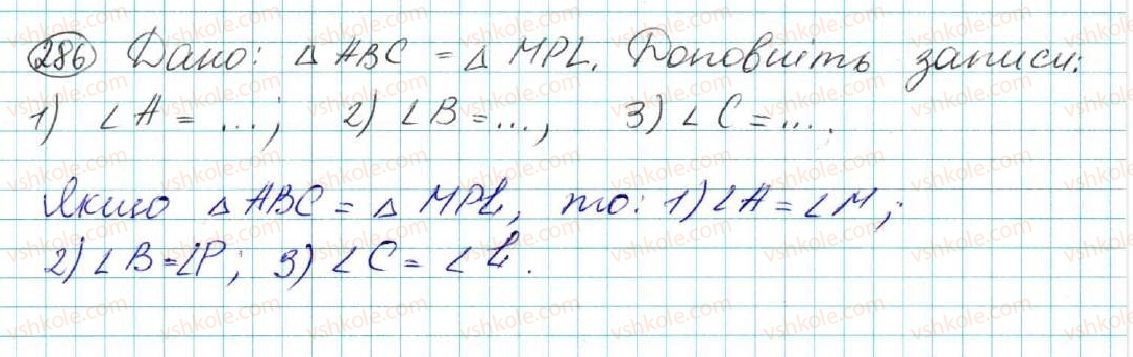 286 Дано: △ ABC = △ MPL. Доповніть записи:
1) ∠A = ...; 2) ∠B = ..., 3) ∠C = ... .
Якщо △ ABC = △ MPL, то: 1) ∠A = ∠M;
2) ∠B = ∠P; 3) ∠C = ∠L.